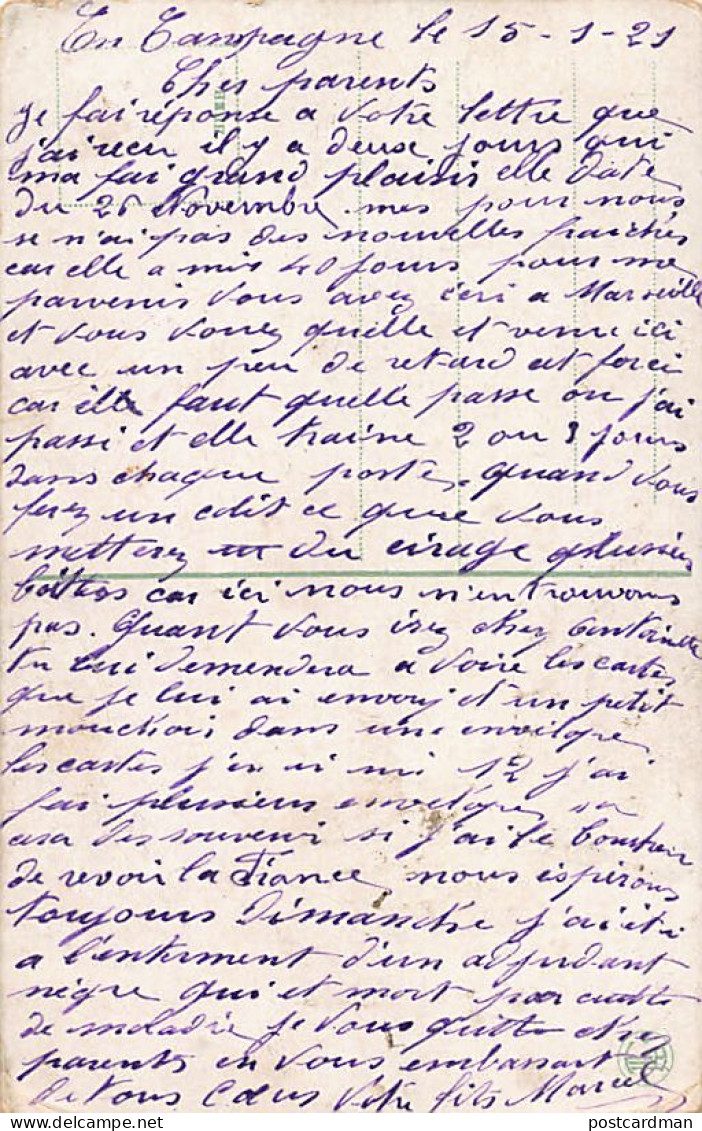 En Campagne le 15-1-21
Cher parents
Je fai réponse a votre lettre que
j'ai recu il y a deux jours qui
ma fai grand plaisir elle date
du 26 Novembre mes pour nous
se n'ai pas des nouvelles fraiches
car elle a mis 40 jours pour me
parvenir vous avez écri a Marseille
et vous voyez quelle et venue ici
avec un peu de retard et forci
car elle faut quelle passe ou j'ai
passi et elle traine 2 ou 3 jours
dans chaque porte. quand vous
ferez un colit ce que vous
metterez du cirage plusieurs
boites car ici nous n'en trouvons
pas. Quant vous irez chez Antoinette
tu lui demendera a voire les cartes
que je lui ai envoy et un petit
mouchoir dans une envelope
les cartes j'en ai mi 12 j'ai
fai plusieurs envelopes
des souvenir si j'ai le bonheur
de revoir la France nous espérons
toujours Dimanche j'ai été
a l'enterment d'un adjudant
nègre qui et mort par cuitte
de maladie je vous quitte cher
parents en vous embassant
de tous cœur Votre fils Marcel
postcardman